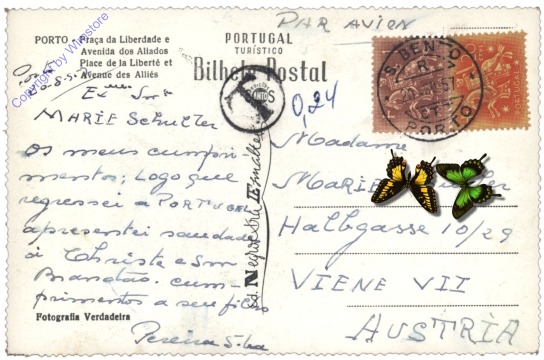 PAR AVION
PORTO - Praça da Liberdade e
Avenida dos Aliados
Place de la Liberté et
Avenue des Alliés
PORTUGAL
TURÍSTICO
Bilhete Postal
Copyright by Winstore
S. BENTO
PORTO
T
0,24
MARIE Schuller
Os meus cumpri
mentos; Logo que
regressei a PORTUGAL
apresentei saudade
á Christa e Snr
Brandão. cum-
primentos a seu filho
Pereira Silva
Fotografia Verdadeira
Madame
MARIE
Halbgasse 10/29
VIENE VII
AUSTRIA